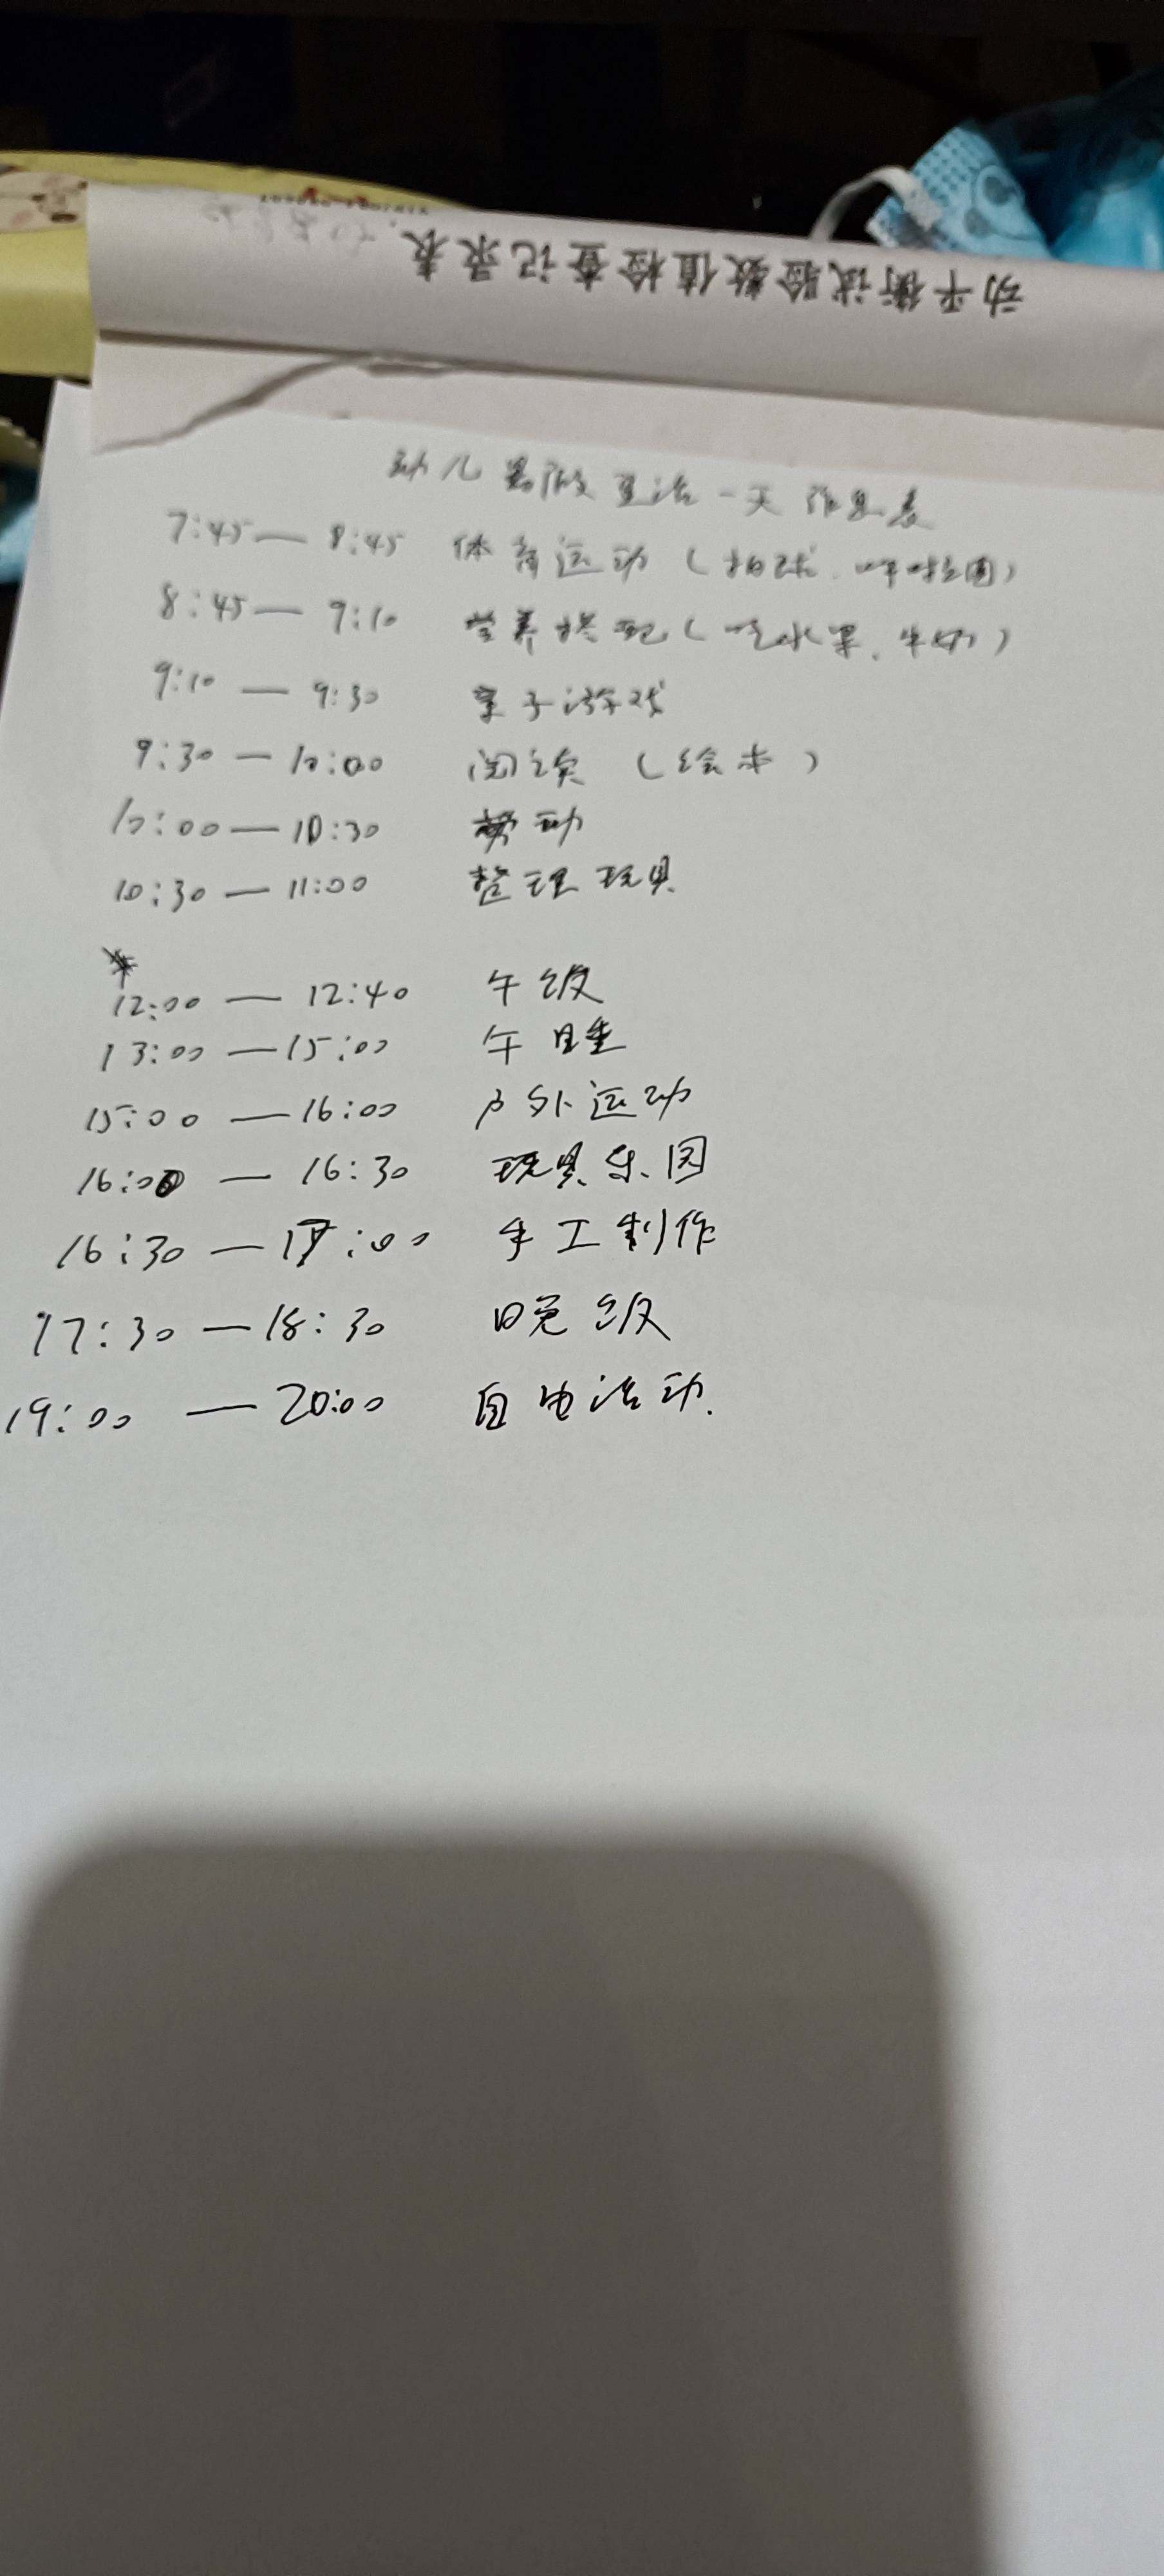 动平衡试验数值检查记录表
幼儿暑假生活一天作息表
7:45—8:45 体育运动(拍球、呼啦圈)
8:45—9:10 营养搭配(吃水果、牛奶)
9:10—9:30 亲子游戏
9:30—10:00 阅读(绘本)
10:00—10:30 劳动
10:30—11:00 整理玩具
12:00—12:40 午饭
13:00—15:00 午睡
15:00—16:00 户外运动
16:00—16:30 玩具乐园
16:30—17:00 手工制作
17:30—18:30 晚饭
19:00—20:00 自由活动.